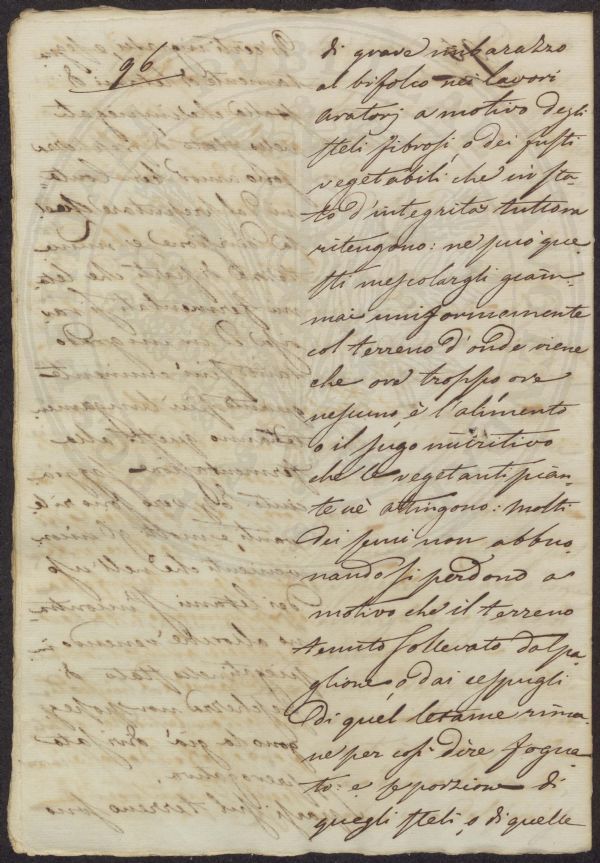 96
di grave imbarazzo
al bifolco nei lavori
aratorj a motivo degli
steli fibrosi, o dei fusti
vegetabili che in sta-
to d'integrità tuttora
ritengono: ne può que
sti mescolargli giam-
mai uniformemente
col terreno d'onde viene
che ove troppo, ove
nessuno, è l'alimento
o il sugo nutritivo
che le vegetanti pian-
te ne attingono: molti
dei semi non abbuo
nando si perdono a
motivo che il terreno
tenuto sollevato dal pa-
glione, o dai cespugli
di quel letame rima-
ne per così dire fogna
to: e se porzione di
quegli steli, o di quelle